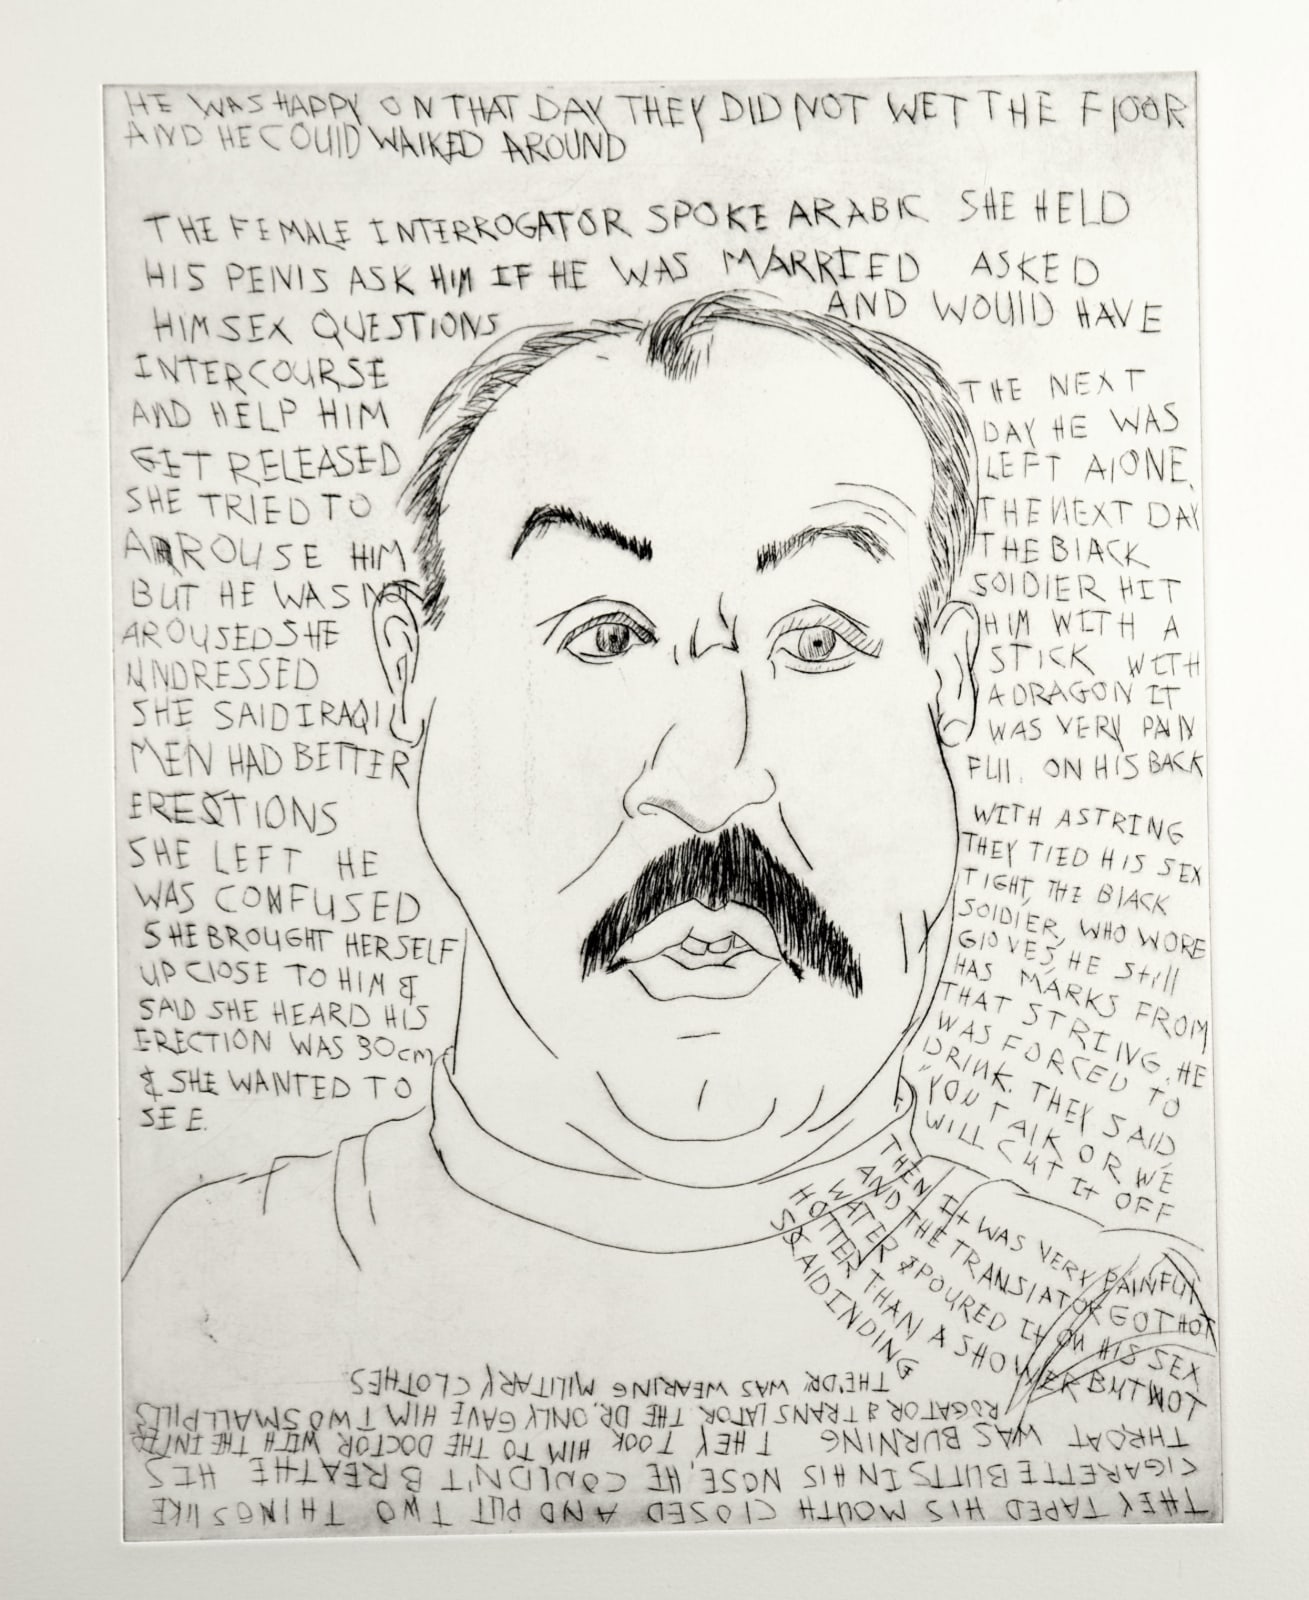 HE WAS HAPPY ON THAT DAY THEY DID NOT WET THE FlOOR
AND HE COUlD WAlKED AROUND
THE FEMALE INTERROGATOR SPOKE ARABIC SHE HELD
HIS PENIS ASK HIM IF HE WAS MARRIED ASKED
HIM SEX QUESTIONS AND WOUlD HAVE
INTERCOURSE
AND HELP HIM
GET RELEASED
SHE TRIED TO
ARROUSE HIM
BUT HE WAS NOT
AROUSED SHE
UNDRESSED
SHE SAID IRAQI
MEN HAD BETTER
ERECTIONS
SHE LEFT HE
WAS CONFUSED
SHE BROUGHT HERSELF
UP ClOSE TO HIM &
SAID SHE HEARD HIS
ERECTION WAS 30cm
& SHE WANTED TO
SEE.
THE NEXT
DAY HE WAS
LEFT AlONE.
THE NEXT DAY
THE BlACK
SOlDIER HIT
HIM WITH A
STICK WITH
A DRAGON IT
WAS VERY PAIN
FUll. ON HIS BACK
WITH A STRING
THEY TIED HIS SEX
TIGHT, THE BlACK
SOlDIER, WHO WORE
GlOVES, HE Still
HAS MARKS FROM
THAT STRING. HE
WAS FORCED TO
DRINK. THEY SAID
"YOU TAlK OR WE
WILL CUT It OFF
THEN It WAS VERY PAINFUl
AND THE TRANSlATOR GOT HOT
WATER & POURED It ON HIS SEX
HOTTER THAN A SHOWER BUT NOT
SCAlDINDING
THEY TAPED HIS MOUTH ClOSED AND PUT TWO THINGS lIKE
CIGARETTE BUTTS IN HIS NOSE, HE COUlDN'T BREATHE HES
THROAT WAS BURNING THEY TOOK HIM TO THE DOCTOR WITH THE INTER
ROGATOR & TRANSlATOR THE DR. ONLY GAVE HIM TWO SMAll PIllS
THE DR. WAS WEARING MILITARY CLOTHES